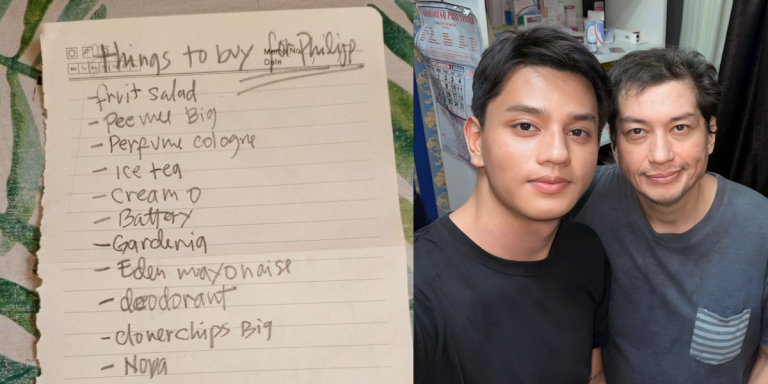 Things to buy for Philipp
Memo No.
Date
fruit salad
- Peewee Big
- Perfume cologne
- ice tea
- Cream O
- Battery
- Gardenia
- Eden mayonaise
- deodorant
- clover chips Big
- Nova